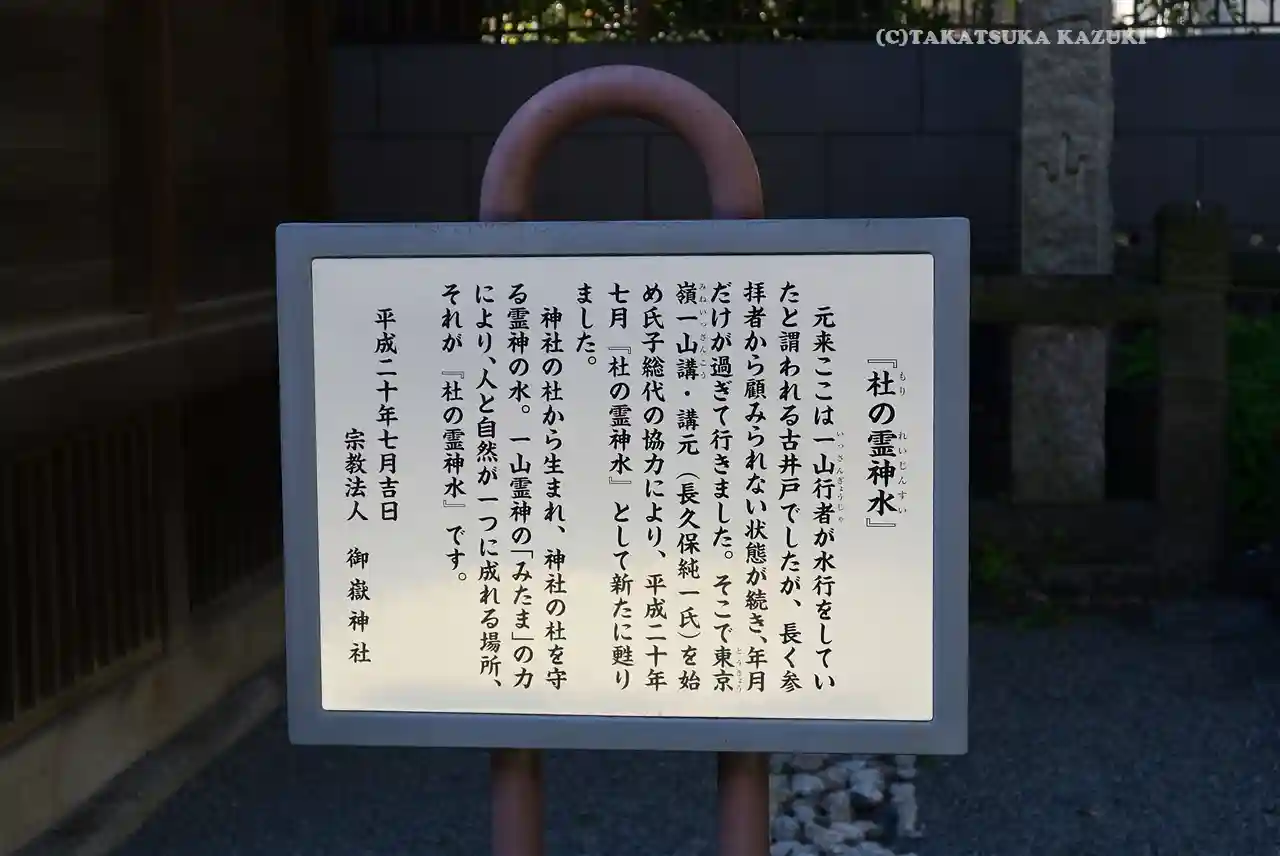 (C)TAKATSUKA KAZUKI
『杜の霊神水』
もり
れいじんすい
元来ここは一山行者が水行をしてい
いっさんぎょうじゃ
たと謂われる古井戸でしたが、長く参
拝者から顧みられない状態が続き、年月
だけが過ぎて行きました。そこで東京
とうきょう
嶺一山講・講元（長久保純一氏）を始
みねいっさんこう
め氏子総代の協力により、平成二十年
七月『杜の霊神水』として新たに甦り
ました。
神社の杜から生まれ、神社の杜を守
る霊神の水。一山霊神の「みたま」の力
により、人と自然が一つに成れる場所、
それが『杜の霊神水』です。
平成二十年七月吉日
宗教法人 御嶽神社